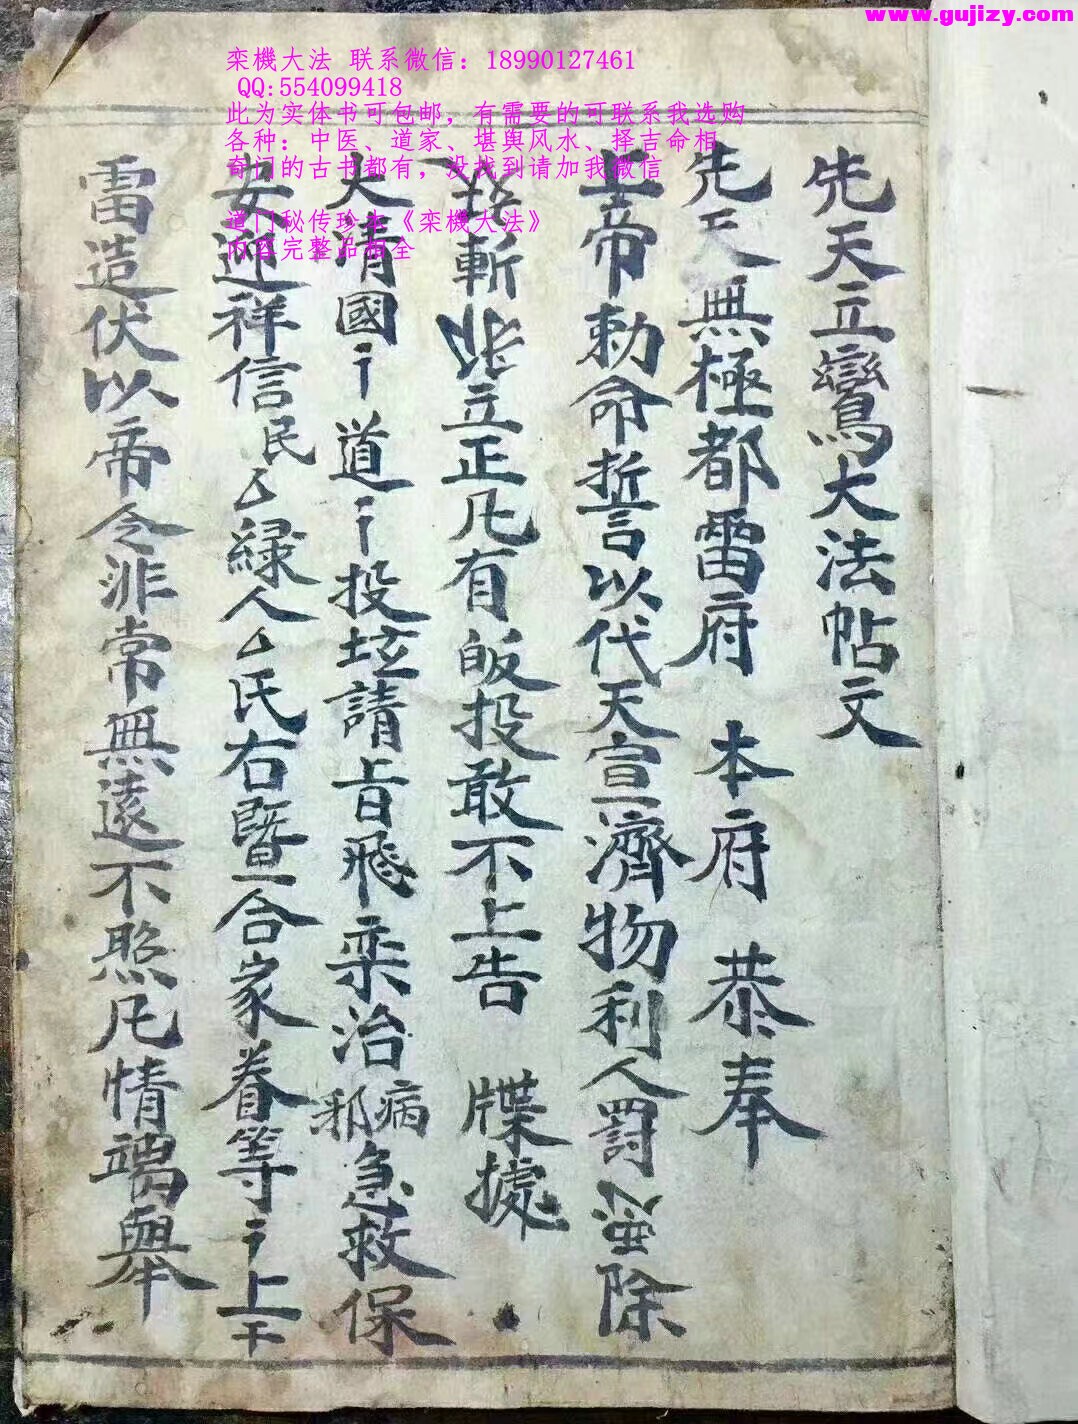 www.gujizy.com
栾機大法 联系微信：18990127461
QQ:554099418
此为实体书可包邮，有需要的可联系我选购
各种：中医、道家、堪舆风水、择吉命相
奇门的古书都有，没找到请加我微信
道门秘传珍本《栾機大法》
内容完整品相全
先天立鸞大法帖文
先天無極都雷府 本府 恭奉
上帝勅命誓以代天宣濟物利人罰 除
斬 立正凡有皈投敢不上告 牒據
大清國 道 投坛請旨飛栾治病邪急救保
女迎祥信民厶緣人厶氏右暨合家眷等 上干
雷造伏以帝令非常無遠不照凡情 舉